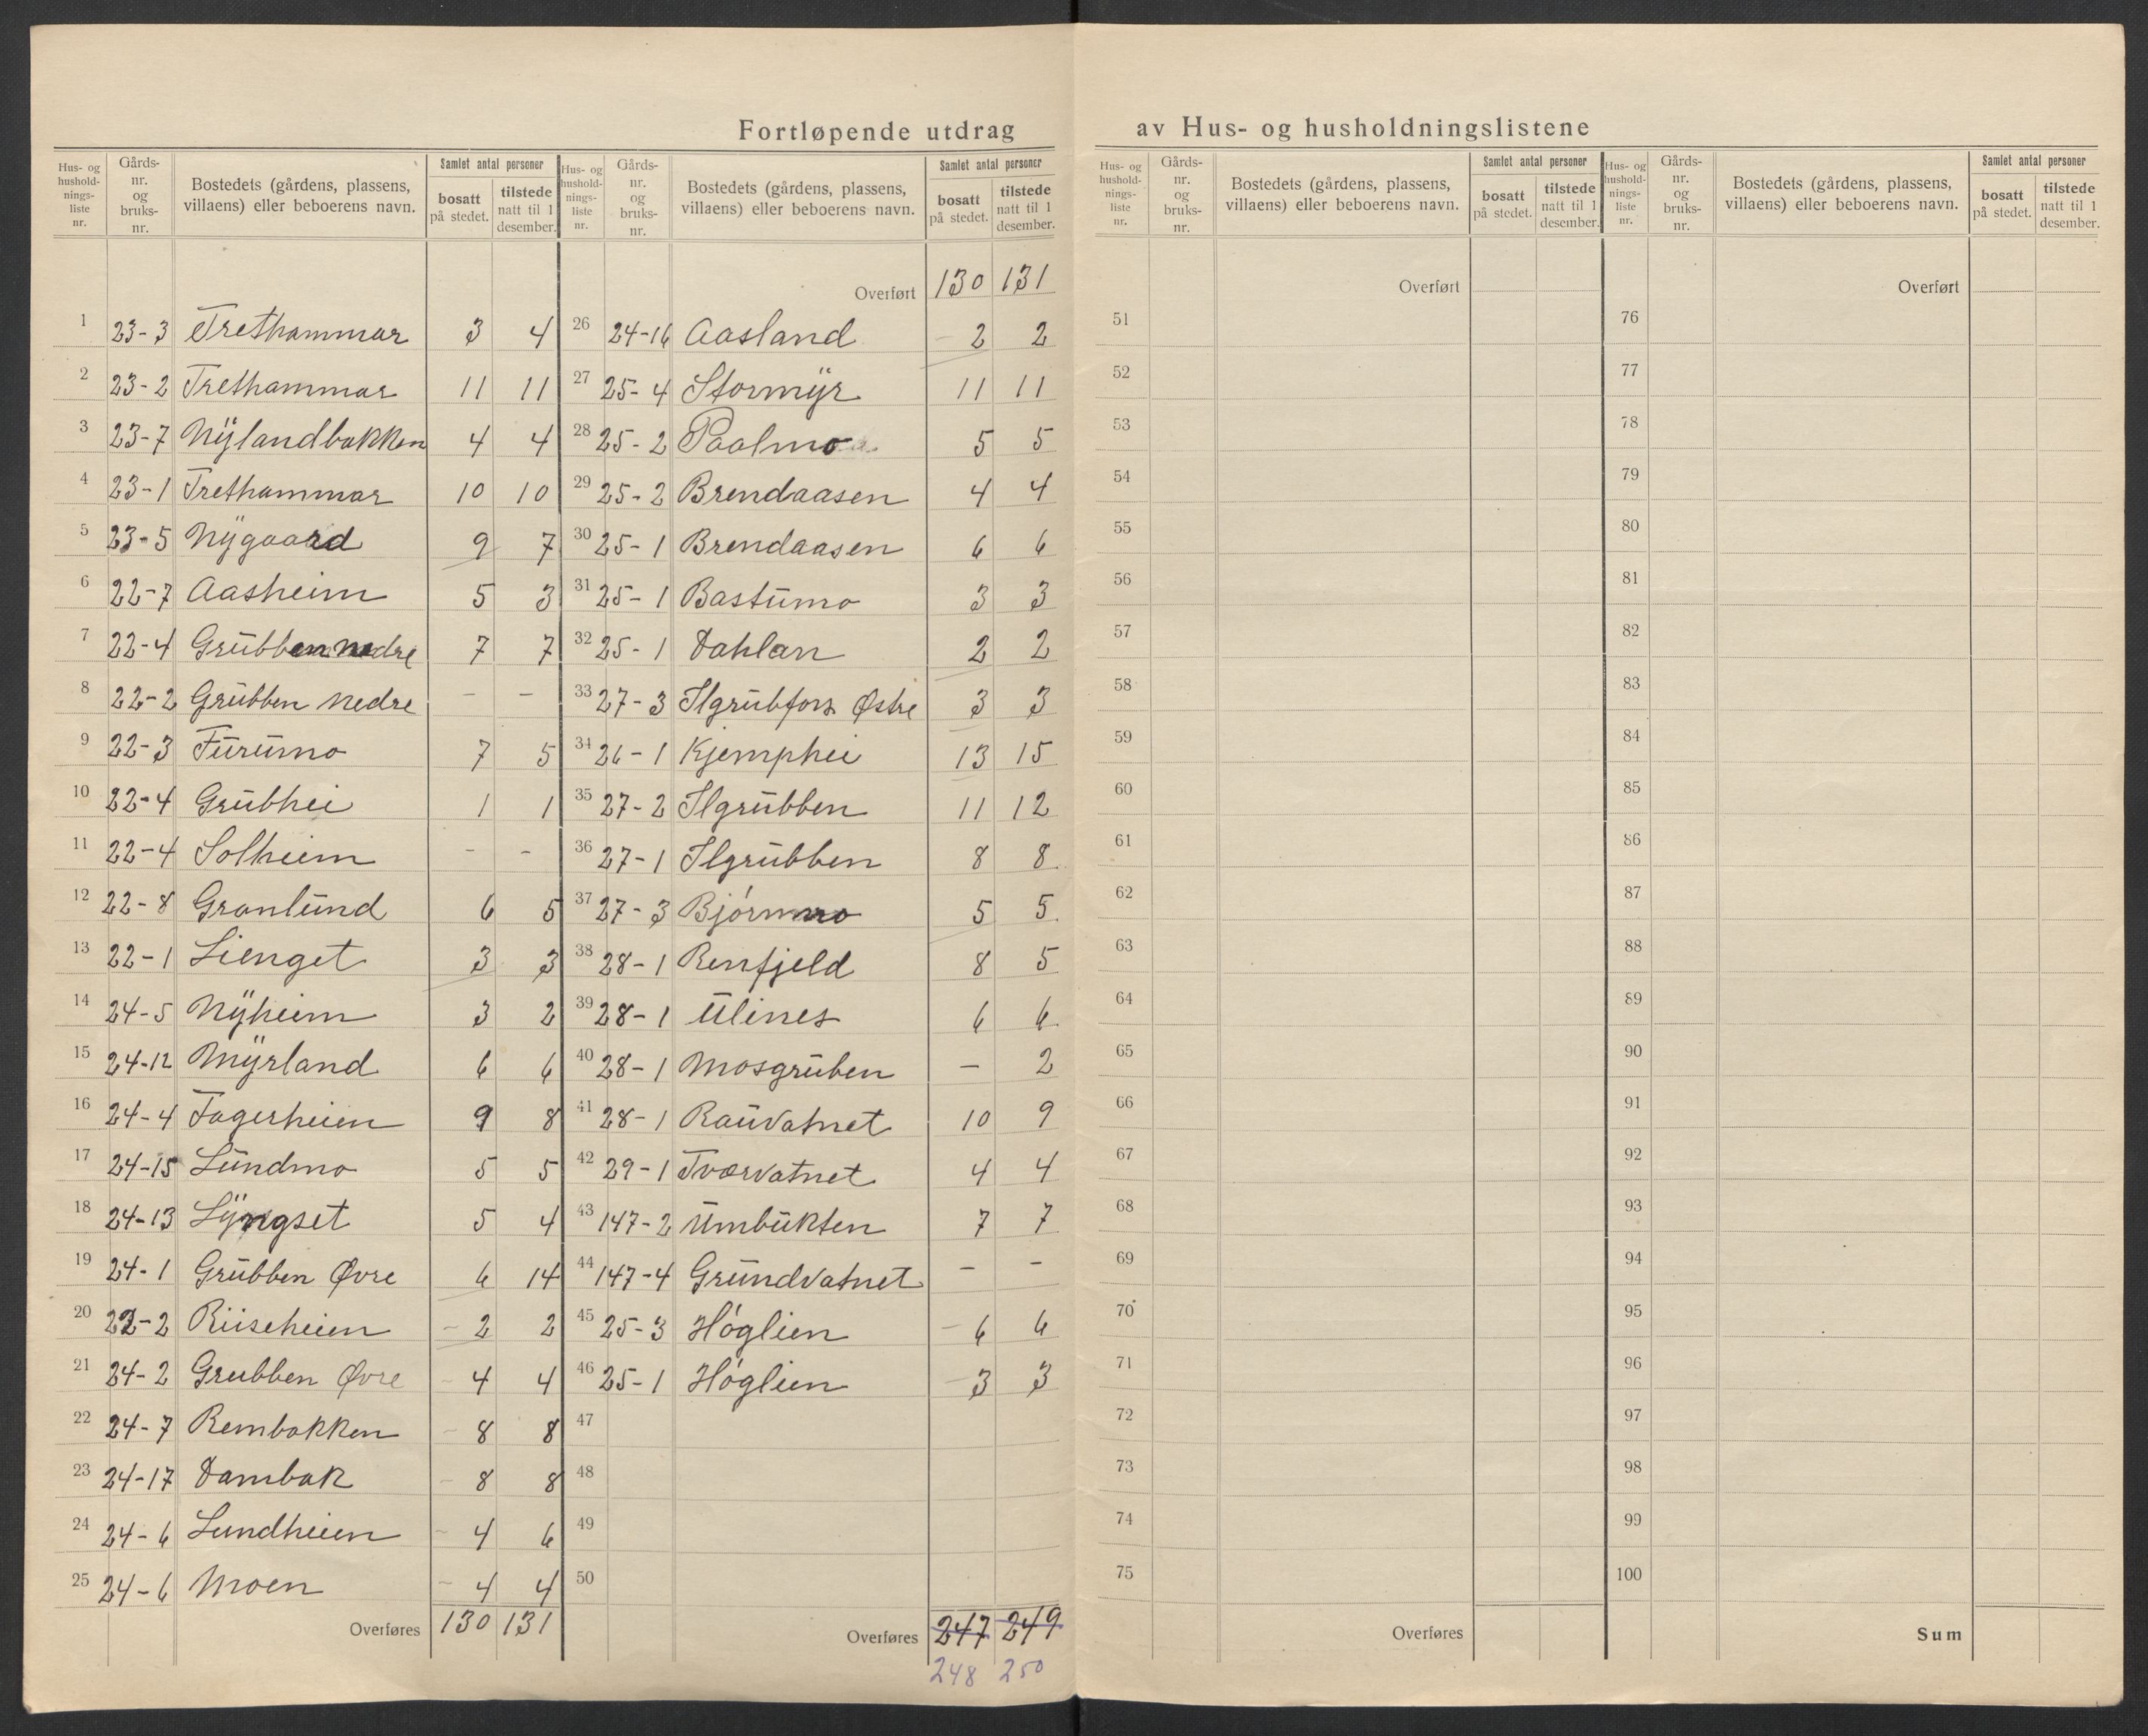 Fortløpende utdrag av Hus- og husholdningslistene
Hus- og hushold-nings-liste nr. Gårds-nr. og bruks-nr. Bostedets (gårdens, plassens, villaens) eller beboerens navn. Samlet antal personer bosatt på stedet. tilstede natt til 1 desember.
1 23-3 Trethammar 3 4
2 23-2 Trethammar 11 11
3 23-7 Nÿlandbakken 4 4
4 23-1 Trethammar 10 10
5 23-5 Nÿgaard 9 7
6 22-7 Aasheim 5 3
7 22-4 Grūbben nedre 7 7
8 22-2 Grūbben nedre - -
9 22-3 Fūrūmo 7 5
10 22-4 Grūbhei 1 1
11 22-4 Solheim - -
12 22-8 Granlūnd 6 5
13 22-1 Lienget 3 3
14 24-5 Nÿheim 3 2
15 24-12 Mÿrland 6 6
16 24-4 Fagerheien 9 8
17 24-15 Lūndmo 5 5
18 24-13 Lÿngset 5 4
19 24-1 Grūbben Øvre 6 14
20 22-2 Riiseheien - 2 2
21 24-2 Grubben Øvre - 4 4
22 24-7 Rembakken - 8 8
23 24-17 Dambak - 8 8
24 24-6 Lundheien - 4 6
25 24-6 Moen - 4 4
Overføres 130 131
Hus- og hushold-nings-liste nr. Gårds-nr. og bruks-nr. Bostedets (gårdens, plassens, villaens) eller beboerens navn. Samlet antal personer bosatt på stedet. tilstede natt til 1 desember.
Overført 130 131
26 24-16 Aasland - 2 2
27 25-4 Stormÿr 11 11
28 25-2 Paalmo 5 5
29 25-2 Brendaasen 4 4
30 25-1 Brendaasen 6 6
31 25-1 Bastūmo 3 3
32 25-1 Dahlan 2 2
33 27-3 Ilgrūbfors Østre 3 3
34 26-1 Kjemphei 13 15
35 27-2 Ilgrūbben 11 12
36 27-1 Ilgrūbben 8 8
37 27-3 Bjórnmo 5 5
38 28-1 Renfjeld 8 5
39 28-1 Ūlines 6 6
40 28-1 Mosgrūben - 2
41 28-1 Raūvatnet 10 9
42 29-1 Tværvatnet 4 4
43 147-2 Ūmbūkten 7 7
44 147-4 Grūndvatnet - -
45 25-3 Hóglien - 6 6
46 25-1 Hóglien - 3 3
47
48
49
50
Overføres 247 249
248 250
Hus- og hushold-nings-liste nr. Gårds-nr. og bruks-nr. Bostedets (gårdens, plassens, villaens) eller beboerens navn. Samlet antal personer bosatt på stedet. tilstede natt til 1 desember.
Overført
51
52
53
54
55
56
57
58
59
60
61
62
63
64
65
66
67
68
69
70
71
72
73
74
75
Overføres
Hus- og hushold-nings-liste nr. Gårds-nr. og bruks-nr. Bostedets (gårdens, plassens, villaens) eller beboerens navn. Samlet antal personer bosatt på stedet. tilstede natt til 1 desember.
Overført
76
77
78
79
80
81
82
83
84
85
86
87
88
89
90
91
92
93
94
95
96
97
98
99
100
Sum